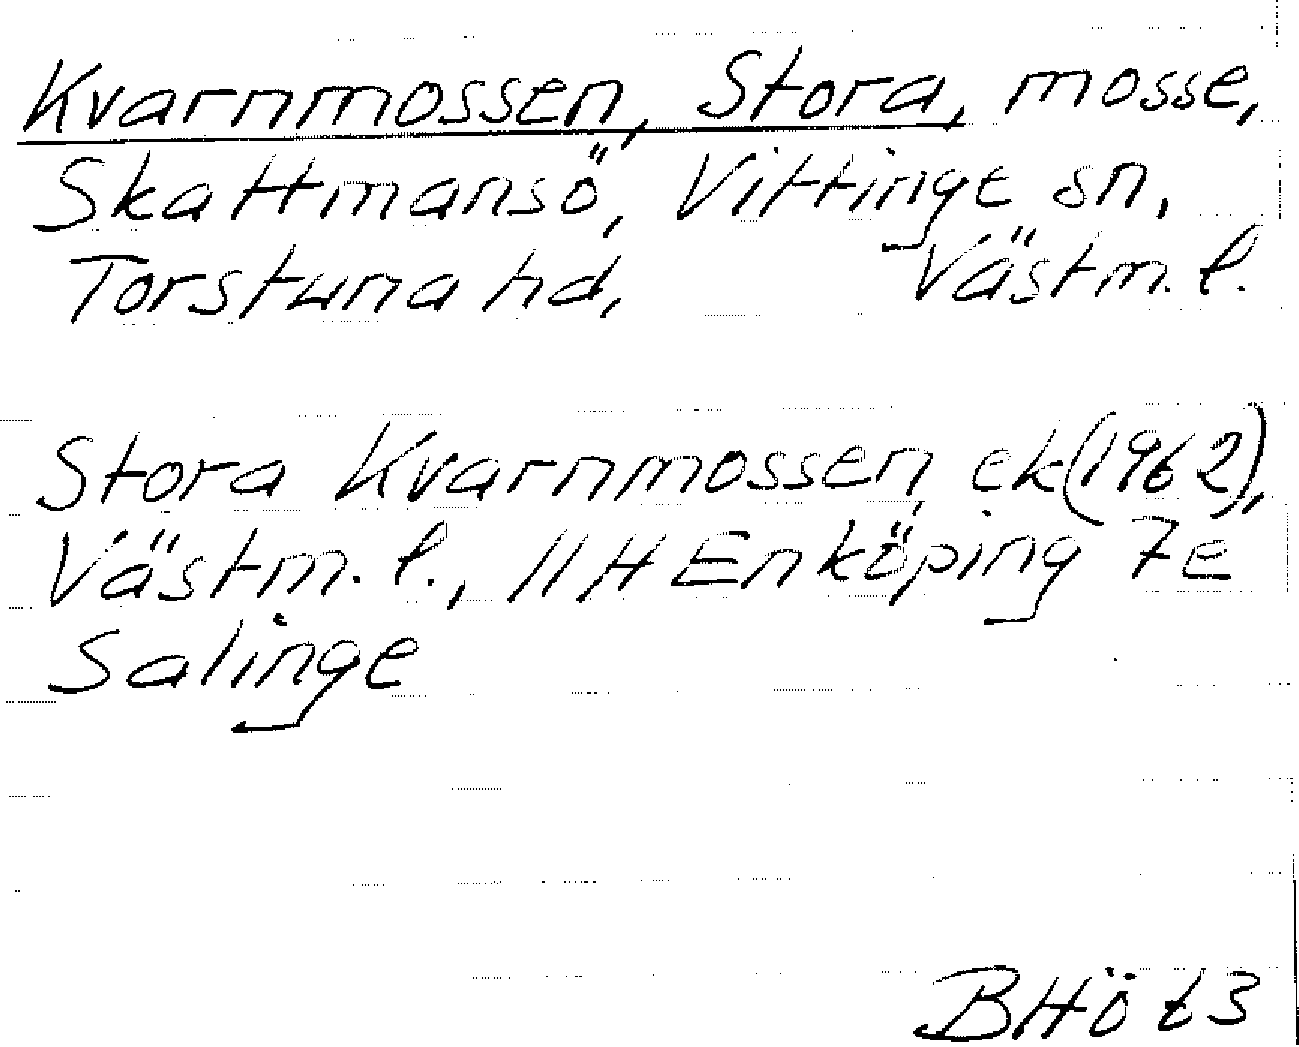 Kvarnmossen, Stora, mosse,
Skattmansö, Vittinge sn,
Torstuna hd, Västm. l.
Stora Kvarnmossen, ek (1962),
Västm. l., 11H Enköping 7e
Salinge
BHö